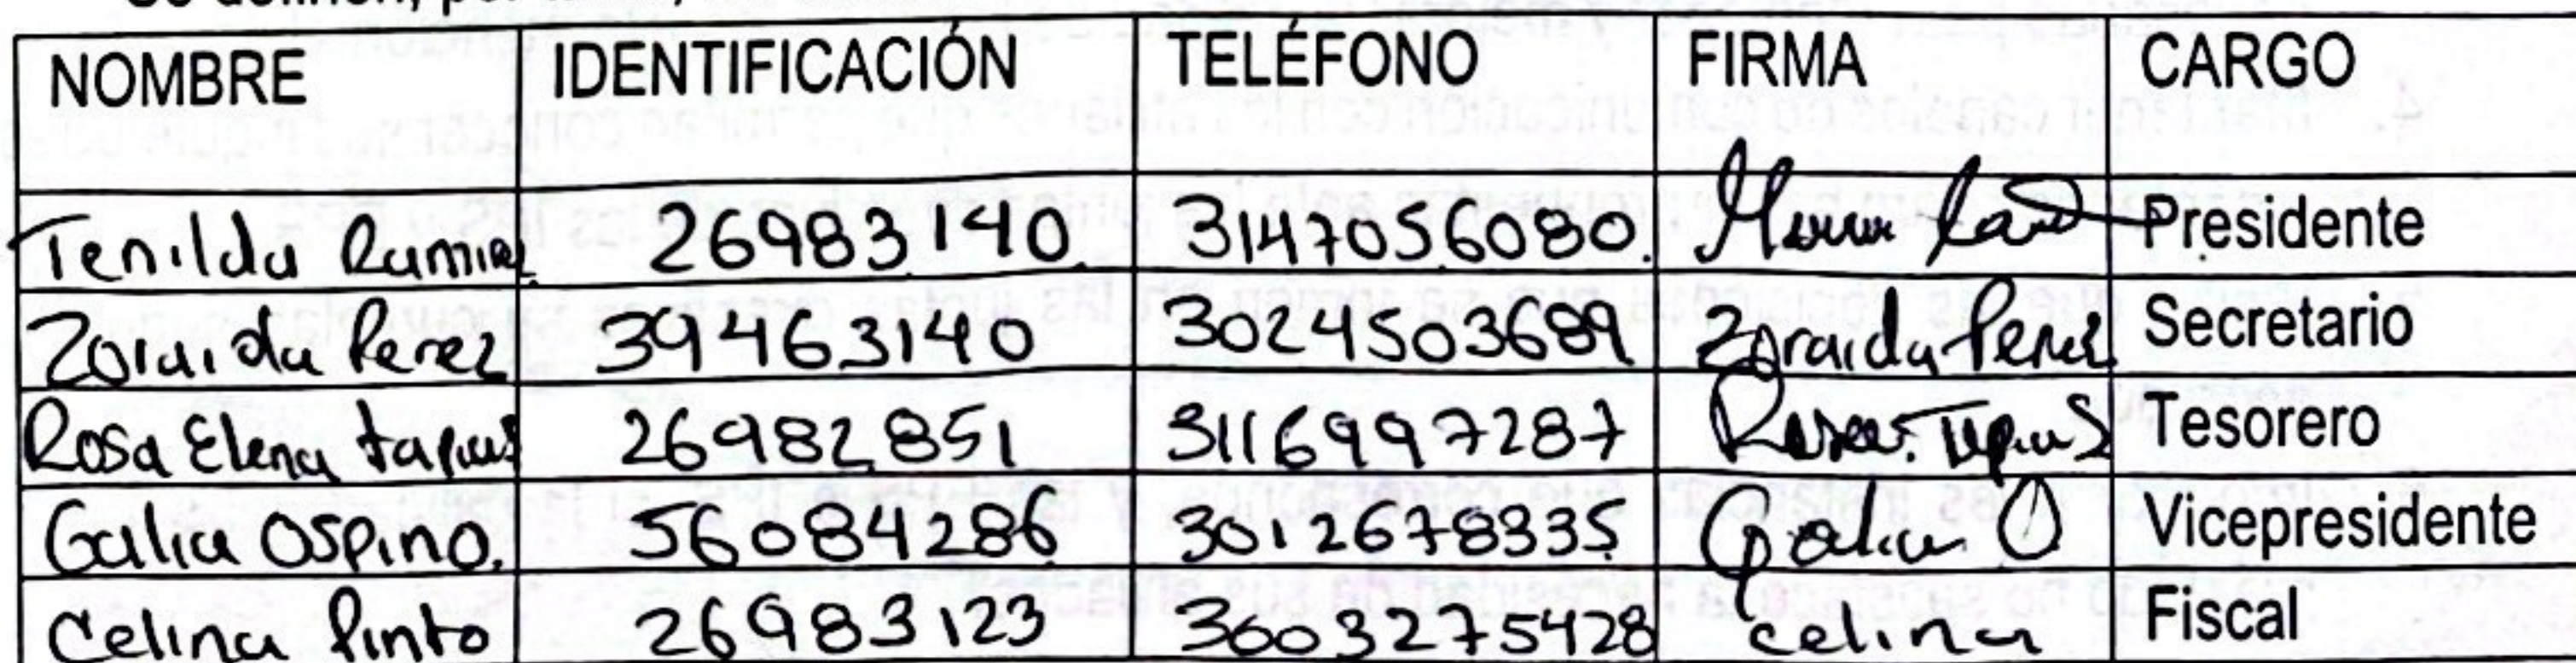 NOMBRE IDENTIFICACIÓN TELÉFONO FIRMA CARGO
Tenilda Ramirez 26983140 3147056080. Presidente
Zoraida Perez 39463140 3024503689 Zoraida Perez Secretario
Rosa Elena 26982851 3116997287 Tesorero
Galia Ospino. 56084286 3012678335 Galia O Vicepresidente
Celina Pinto 26983123 3603275428 Celina Fiscal